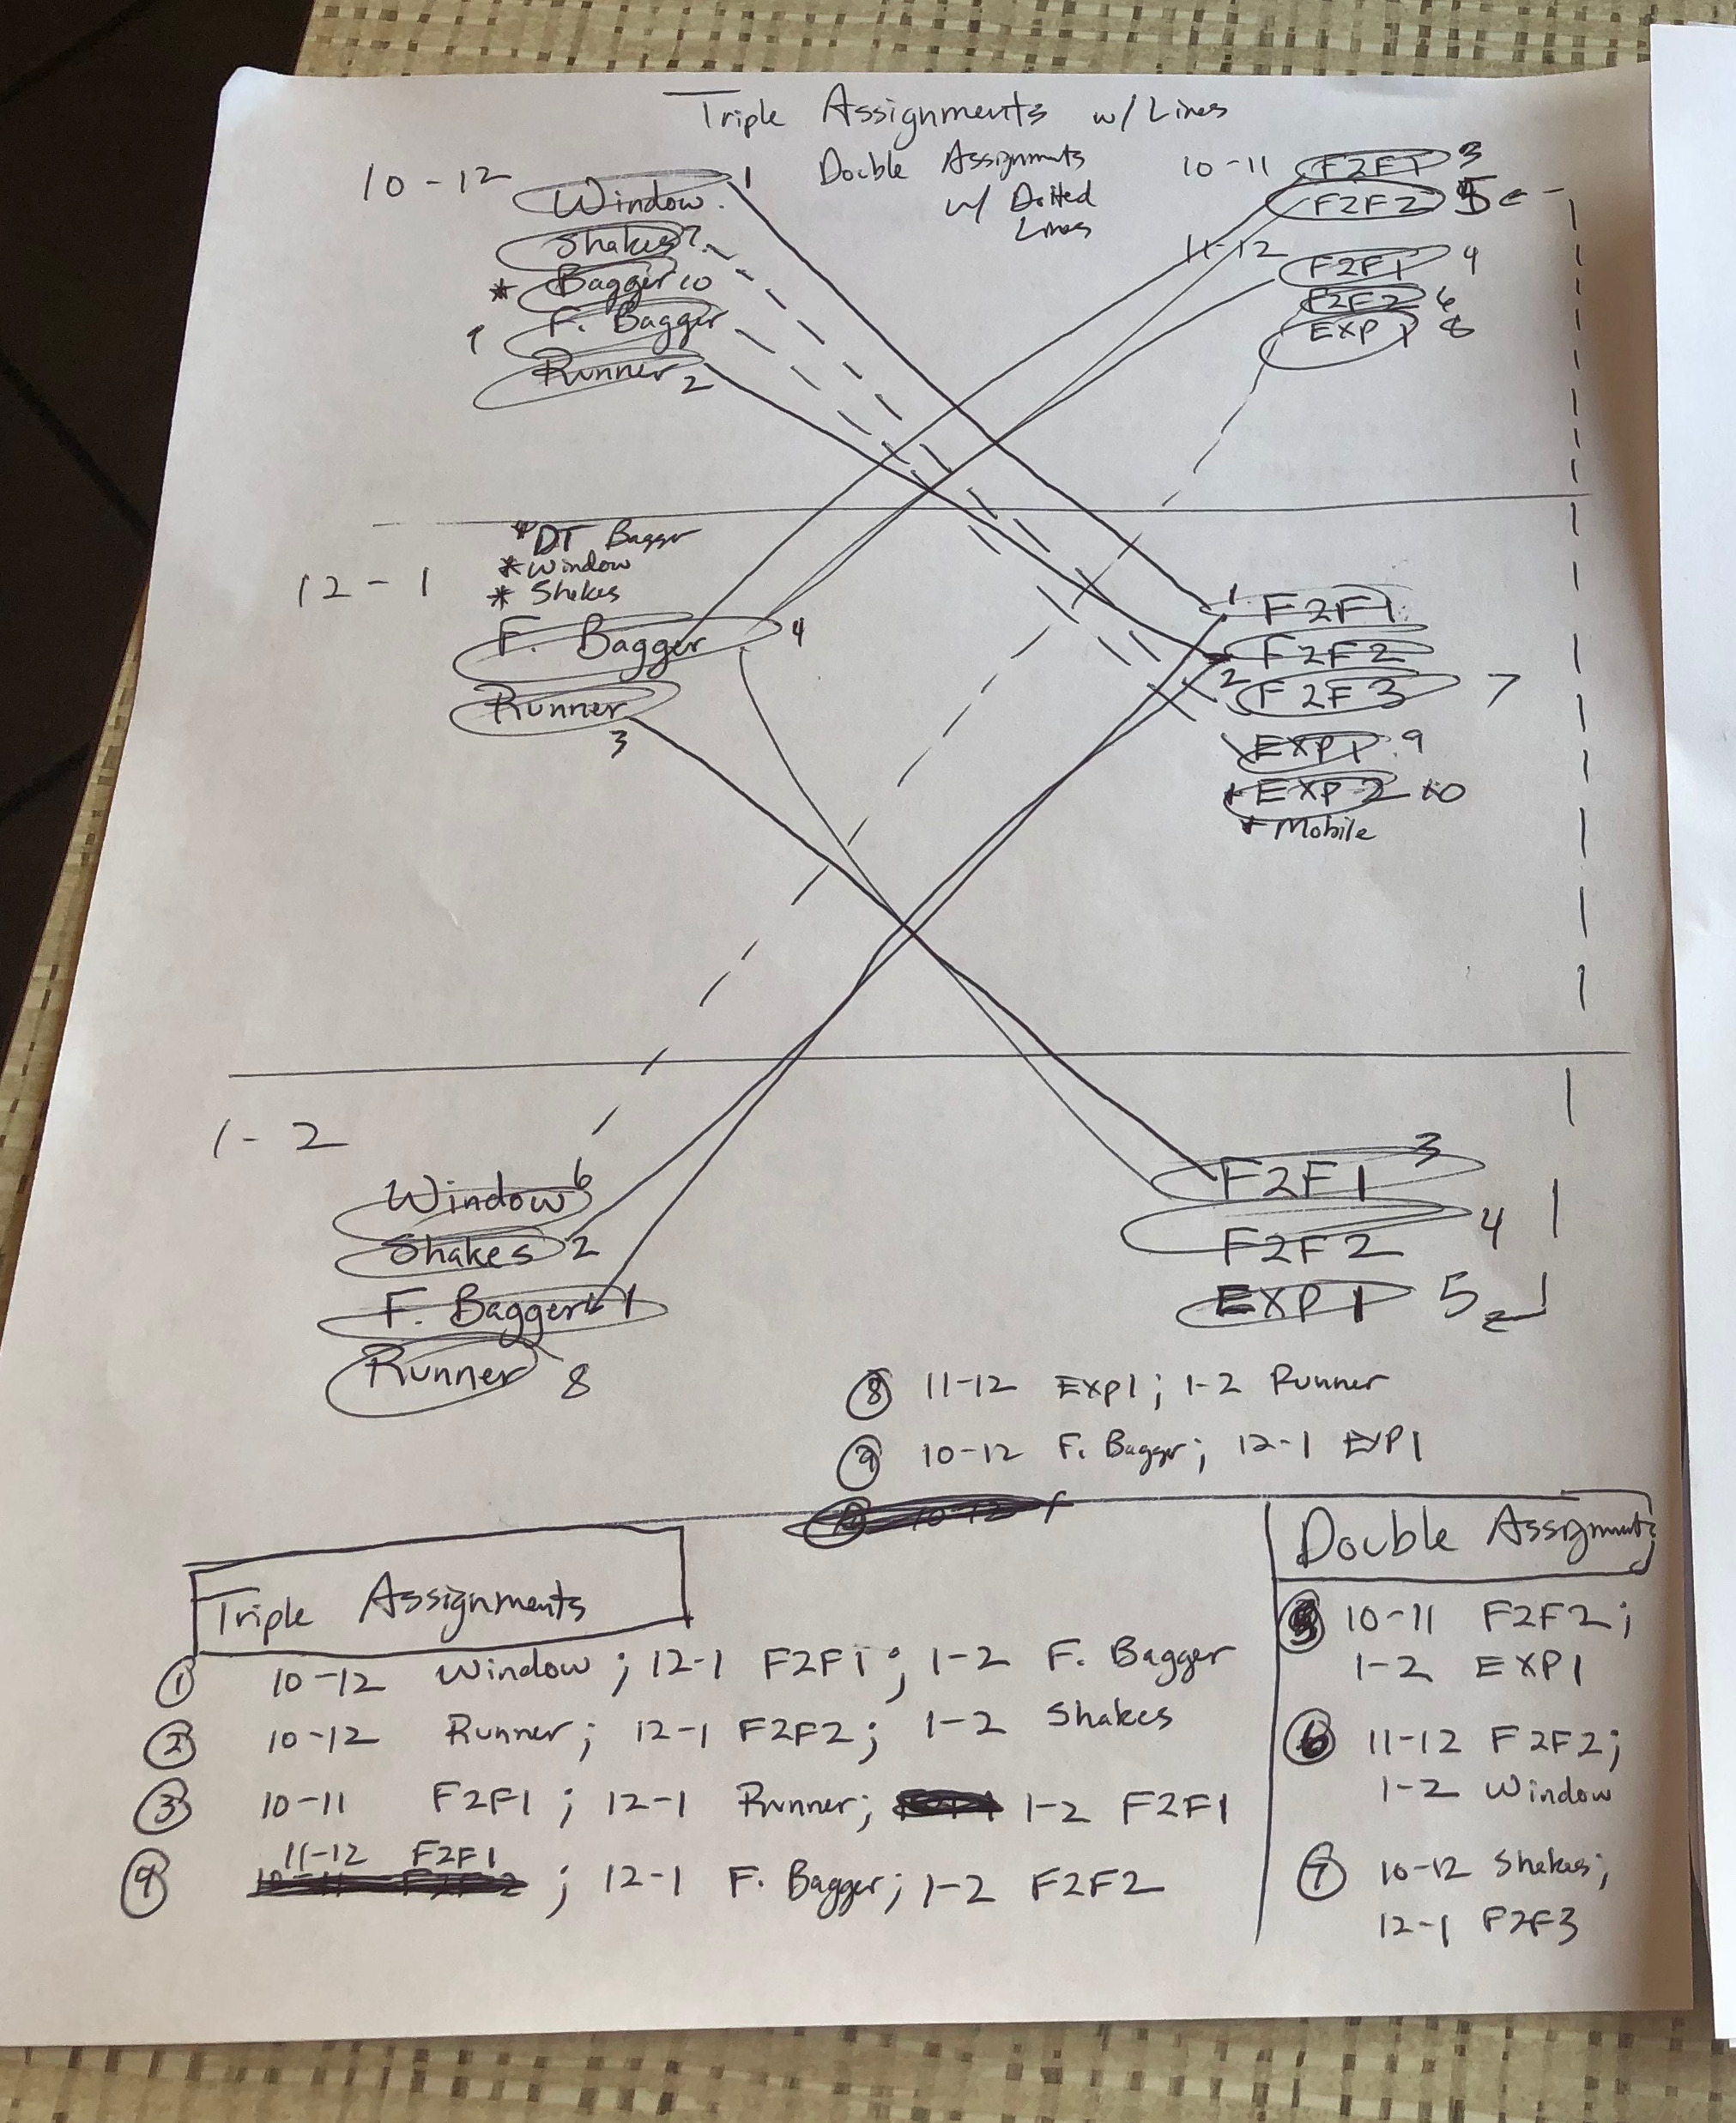 Triple Assignments w/ Lines
Double Assignments
w/ Dotted
Lines
10-12
Window 1
Shakes 7
* Bagger 10
9 F. Bagger
Runner 2
10-11 F2F1 3
F2F2 5
11-12 F2F1 4
F2F2 6
EXP1 8
12-1
* DT Bagger
* Window
* Shakes
F. Bagger 4
Runner 3
1 F2F1
F2F2
2 F2F3 7
EXP1 9
* EXP2 10
* Mobile
1-2
Window 6
Shakes 2
F. Bagger 1
Runner 8
F2F1 3
F2F2 4
EXP1 5
8 11-12 EXP1; 1-2 Runner
9 10-12 F. Bagger; 12-1 EXP1
Triple Assignments
1 10-12 Window; 12-1 F2F1; 1-2 F. Bagger
2 10-12 Runner; 12-1 F2F2; 1-2 Shakes
3 10-11 F2F1; 12-1 Runner; 1-2 F2F1
4 11-12 F2F1; 12-1 F. Bagger; 1-2 F2F2
Double Assignments
5 10-11 F2F2;
1-2 EXP1
6 11-12 F2F2;
1-2 Window
7 10-12 Shakes;
12-1 F2F3